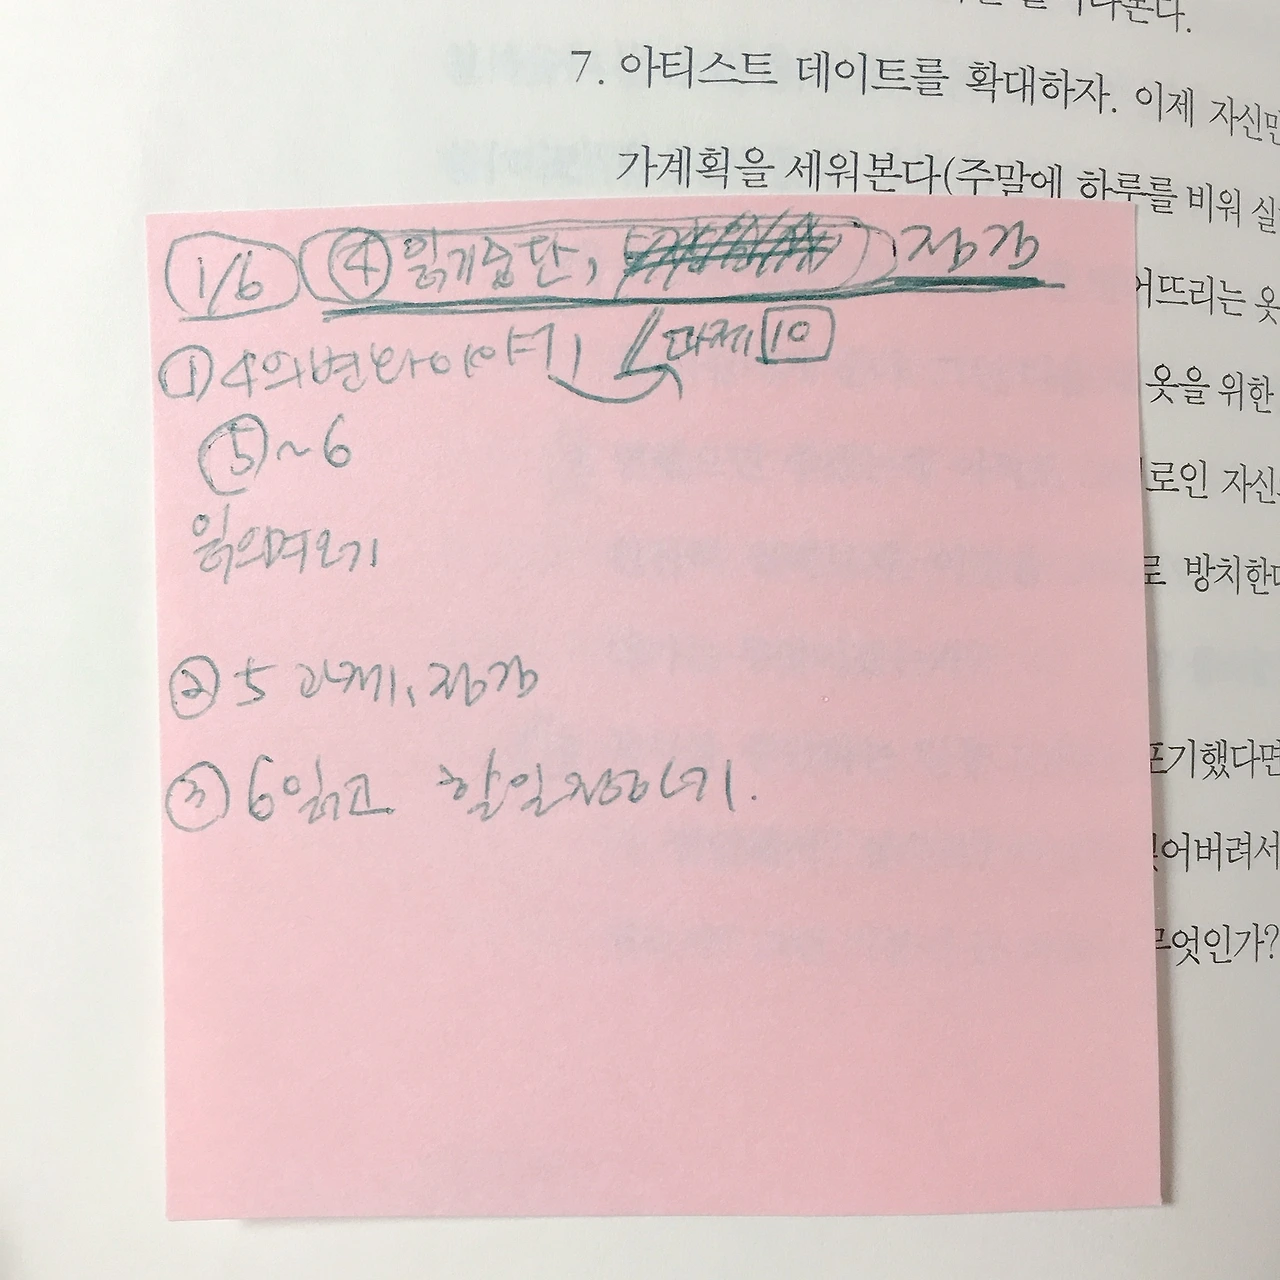 7. 아티스트 데이트를 확대하자. 이제 자신만
가계획을 세워본다(주말에 하루를 비워 실
1/6 ④ 읽기중단, 점검
어뜨리는 옷
① 4의변화이야기, 과제 10
옷을 위한
⑤~6
로인 자신
읽으며오기
로 방치한다
② 5 과제, 점검
포기했다면
③ 6읽고 할일정하기.
어버려서
무엇인가?